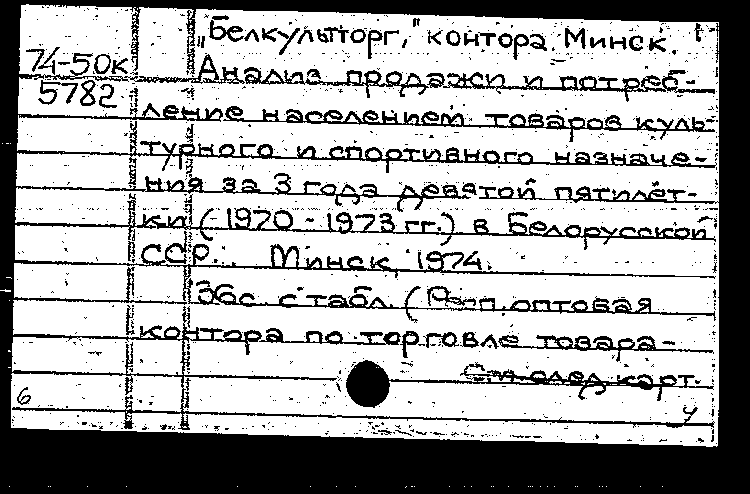 „Белкультторг," контора. Минск.
74-50к Анализ продажи и потреб-
5782 ление населением товаров куль-
турного и спортивного назначе-
ния за 3 года девятой пятилет-
ки (1970-1973 гг.) в Белорусской
ССР. Минск, 1974.
36с. с табл. (Респ. оптовая
контора по торговле товара-
См. след. карт.
6